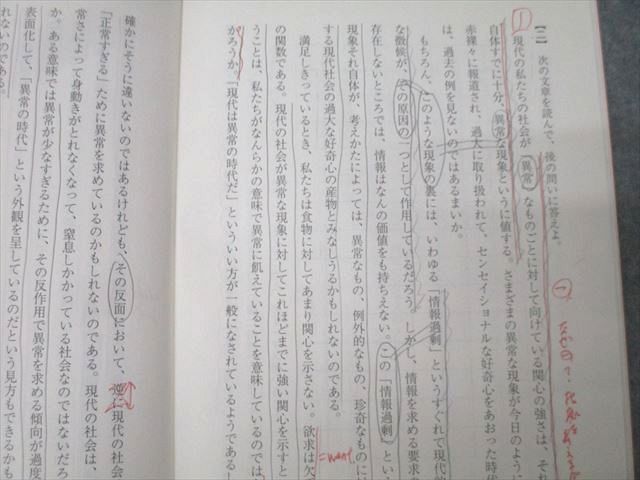 【二】 次の文章を読んで、後の問いに答えよ。
現代の私たちの社会が、異常なものごとに対して向けている関心の強さは、それ
自体すでに十分、異常な現象というに値する。さまざまの異常な現象が今日のように
赤裸々に報道され、過大に取り扱われて、センセイショナルな好奇心をあおった時代
は、過去の例を見ないのではあるまいか。
もちろん、このような現象の裏には、いわゆる「情報過剰」というすぐれて現代的
な徴候が、その原因の一つとして作用しているだろう。しかし、情報を求める要求の
存在しないところでは、情報はなんの価値をも持ちえない。この「情報過剰」とい
現象それ自体が、考えかたによっては、異常なもの、例外的なもの、珍奇なものに
する現代社会の過大な好奇心の産物とみなしうるかもしれないのである。
満足しきっているとき、私たちは食物に対してあまり関心を示さない。欲求は欠
の関数である。現代の社会が異常な現象に対してこれほどまでに強い関心を示すと
うことは、私たちがなんらかの意味で異常に飢えていることを意味しているのでは
かろうか。「現代は異常の時代だ」といういい方が一般になされているようである
確かにそうに違いないのではあるけれども、その反面において、逆に現代の社会
「正常すぎる」ために異常を求めているのかもしれないのである。現代の社会は、
常さによって身動きがとれなくなって、窒息しかかっている社会なのではないだろ
か。ある意味では異常が少なすぎるために、その反作用で異常を求める傾向が過度
表面化して、「異常の時代」という外観を呈しているのだという見方もできるかも
れないのである。